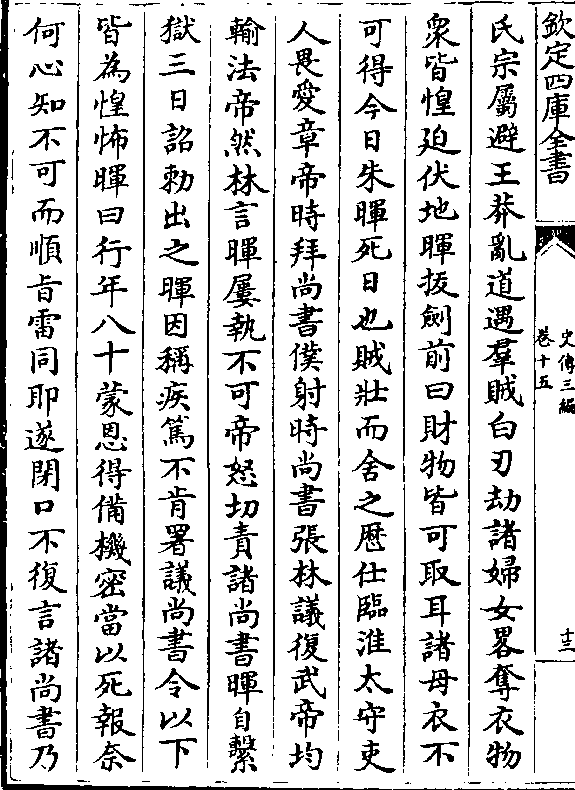 欽定四庫全書
史傳三編
卷十五
十三
氏宗屬避王莽亂道遇羣賊白刃劫諸婦女畧奪衣物
衆皆惶廹伏地暉拔劍前曰財物皆可取耳諸母衣不
可得今日朱暉死日也賊壯而舍之歴仕臨淮太守吏
人畏愛章帝時拜尚書僕射時尚書張林議復武帝均
輸法帝然林言暉屢執不可帝怒切責諸尚書暉自繫
獄三日詔勅出之暉因稱疾篤不肯署議尚書令以下
皆為惶怖暉曰行年八十蒙恩得備機密當以死報奈
何心知不可而順㫖雷同耶遂閉口不復言諸尚書乃